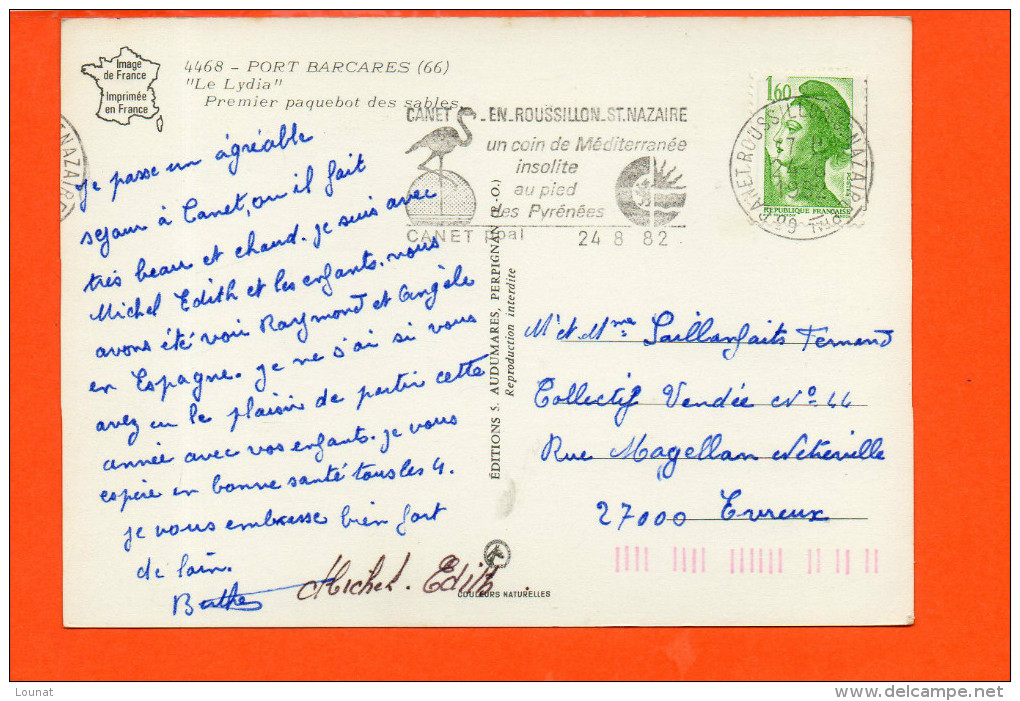 Image
de France
Imprimée
en France
4468 - PORT BARCARES (66)
"Le Lydia"
Premier paquebot des sables
CANET - EN - ROUSSILLON - ST. NAZAIRE
un coin de Méditerranée
insolite
au pied
des Pyrénées
CANET ppal 24 8 82
1,60
REPUBLIQUE FRANÇAISE
Je passe un agréable
sejour à Canet, ou il fait
très beau et chaud. Je suis avec
Michel Edith et les enfants. nous
avons été voir Raymond et Angèle
en Espagne. Je ne s'ai si vous
avez eu le plaisir de partir cette
année avec vos enfants. Je vous
espère en bonne santé tous les 4.
Je vous embrasse bien fort
de loin.
Berthe
Michel. Edith
EDITIONS S. AUDUMARES, PERPIGNAN (P.-O.)
Reproduction interdite
COULEURS NATURELLES
Mr et Mme Saillanfaits Fernand
Collectif Vendée No 44
Rue Magellan Netreville
27000 Evreux
Lounat
delcampe.net